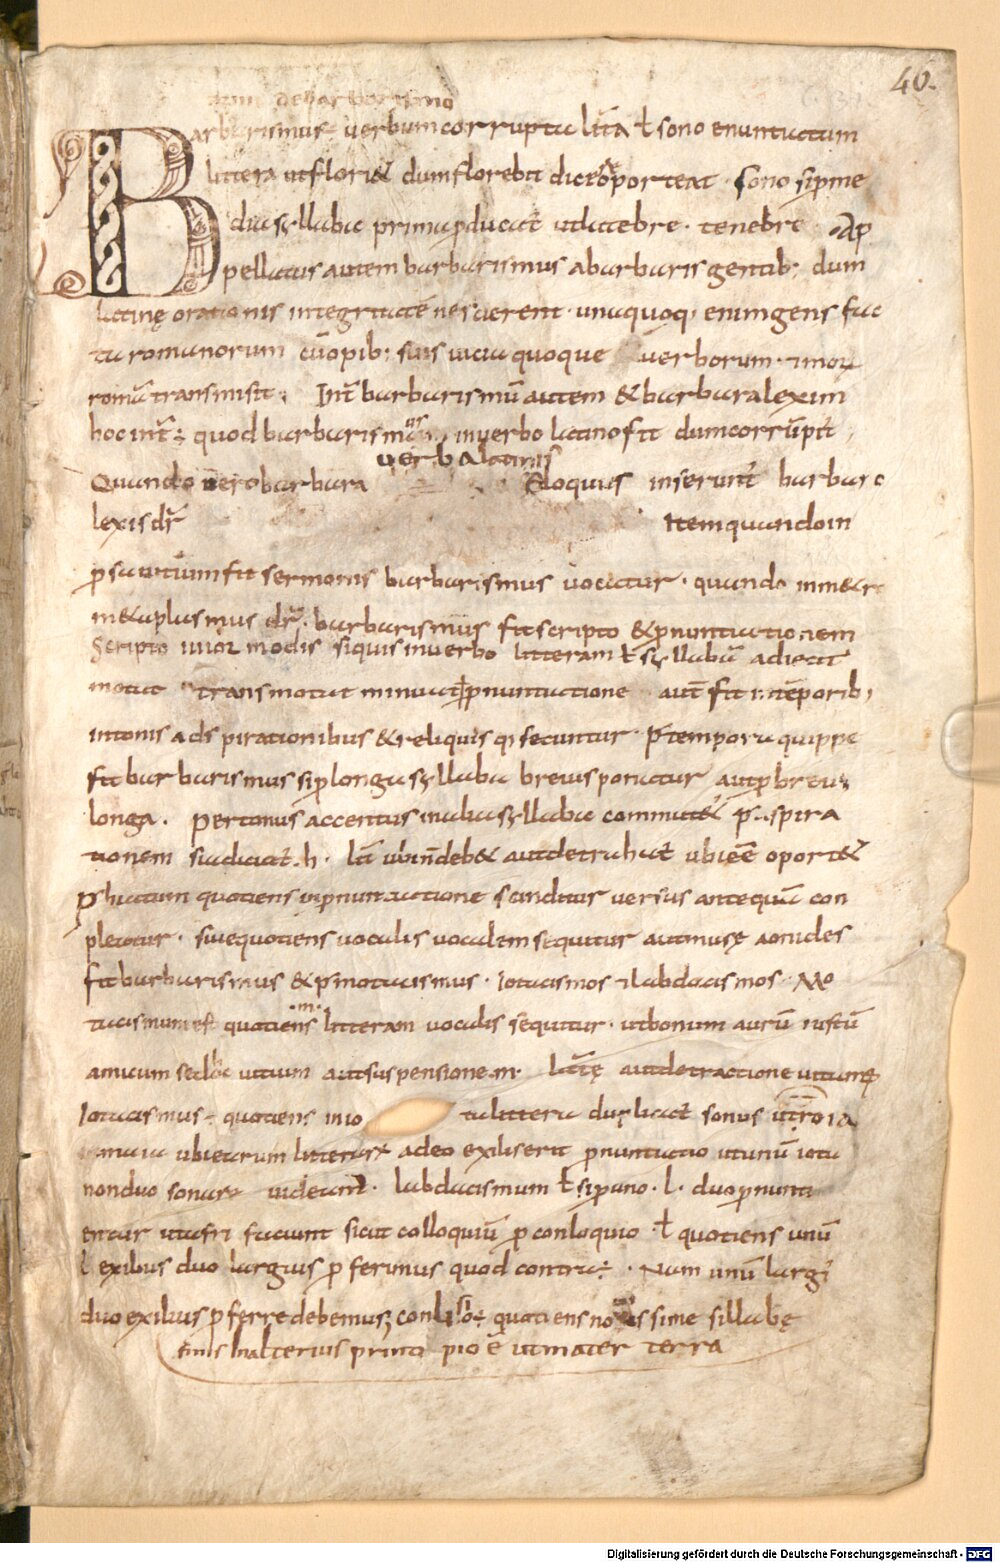 40.
de barbarismo
Barbarismus ÷ verbum corrupta litt̄a ł sono enuntiatum
littera ut floriet dum florebit dicere oporteat. sono si p me
dia syllaba prima pducat̄ ut latebre. tenebre. Ap
pellatus autem barbarismus a barbaris gentib; dum
latinę orationis integritatē nescierent. unaquoq; enim gens fac
ta romanorum cū opib; suis uicia quoque verborum. & mor
romā transmisit; Int̄ barbarismū autem & barbaralexim
hoc int̄÷ quod barbarismus in verbo latino fit dum corrūpit̄
verba latinis
Quando vero barbara eloquiis inserunt̄ barbaro
lexis dr̄ Item quando in
psa uitium fit sermonis barbarismus uocatur. quando in metro
metaplasmus dr̄. barbarismus fit scripto & pnuntiationem
Scripto iiiior modis siquis in verbo litteram ł syllabā adiciat
motat transmotat minuat pnuntiatione autē fit in tēporib;
in tonis adspirationibus & reliquis q; secuntur. P tempora quippe
fit barbarismus si p longa syllaba breuis ponatur aut p breui
longa. Per tonus accentus in alia syllaba commutet P aspira
tionem si adiciat̄ .h. litt̄a ubi n̄ debet aut detrahat̄ ubi eē oportet
P hiatum quotiens in pnuntiatione scinditur versus antequā con
pleatur. siue quotiens uocalis uocalem sequitur aut musę aonides
fit barbarismus & p motacismus. Iotacismos & labdacismos. Mo
tacismum est quotiens .m. litteram uocalis sequitur. ut bonum aurū iustū
amicum sed hoc uitium aut suspensione .m. litt̄ę aut detractione uitamus
Iotacismus ÷ quotiens in iota littera duplicat̄ sonus ut troia
maia ubi earum litterarum adeo exilis erit pnuntiatio ut unū iota
non duo sonare uideant̄. labdacismum ł si p uno .l. duo pnunti
entur ut afri faciunt sicut colloquiū p conloquio ł quotiens unū
l exilius duo largius p ferimus quod contra÷. Nam unū largi
duo exilius p ferre debemus; conlisio÷ quotiens nouissime sillabę
finis in alterius principio ē ut mater terra
Digitalisierung gefördert durch die Deutsche Forschungsgemeinschaft - DFG